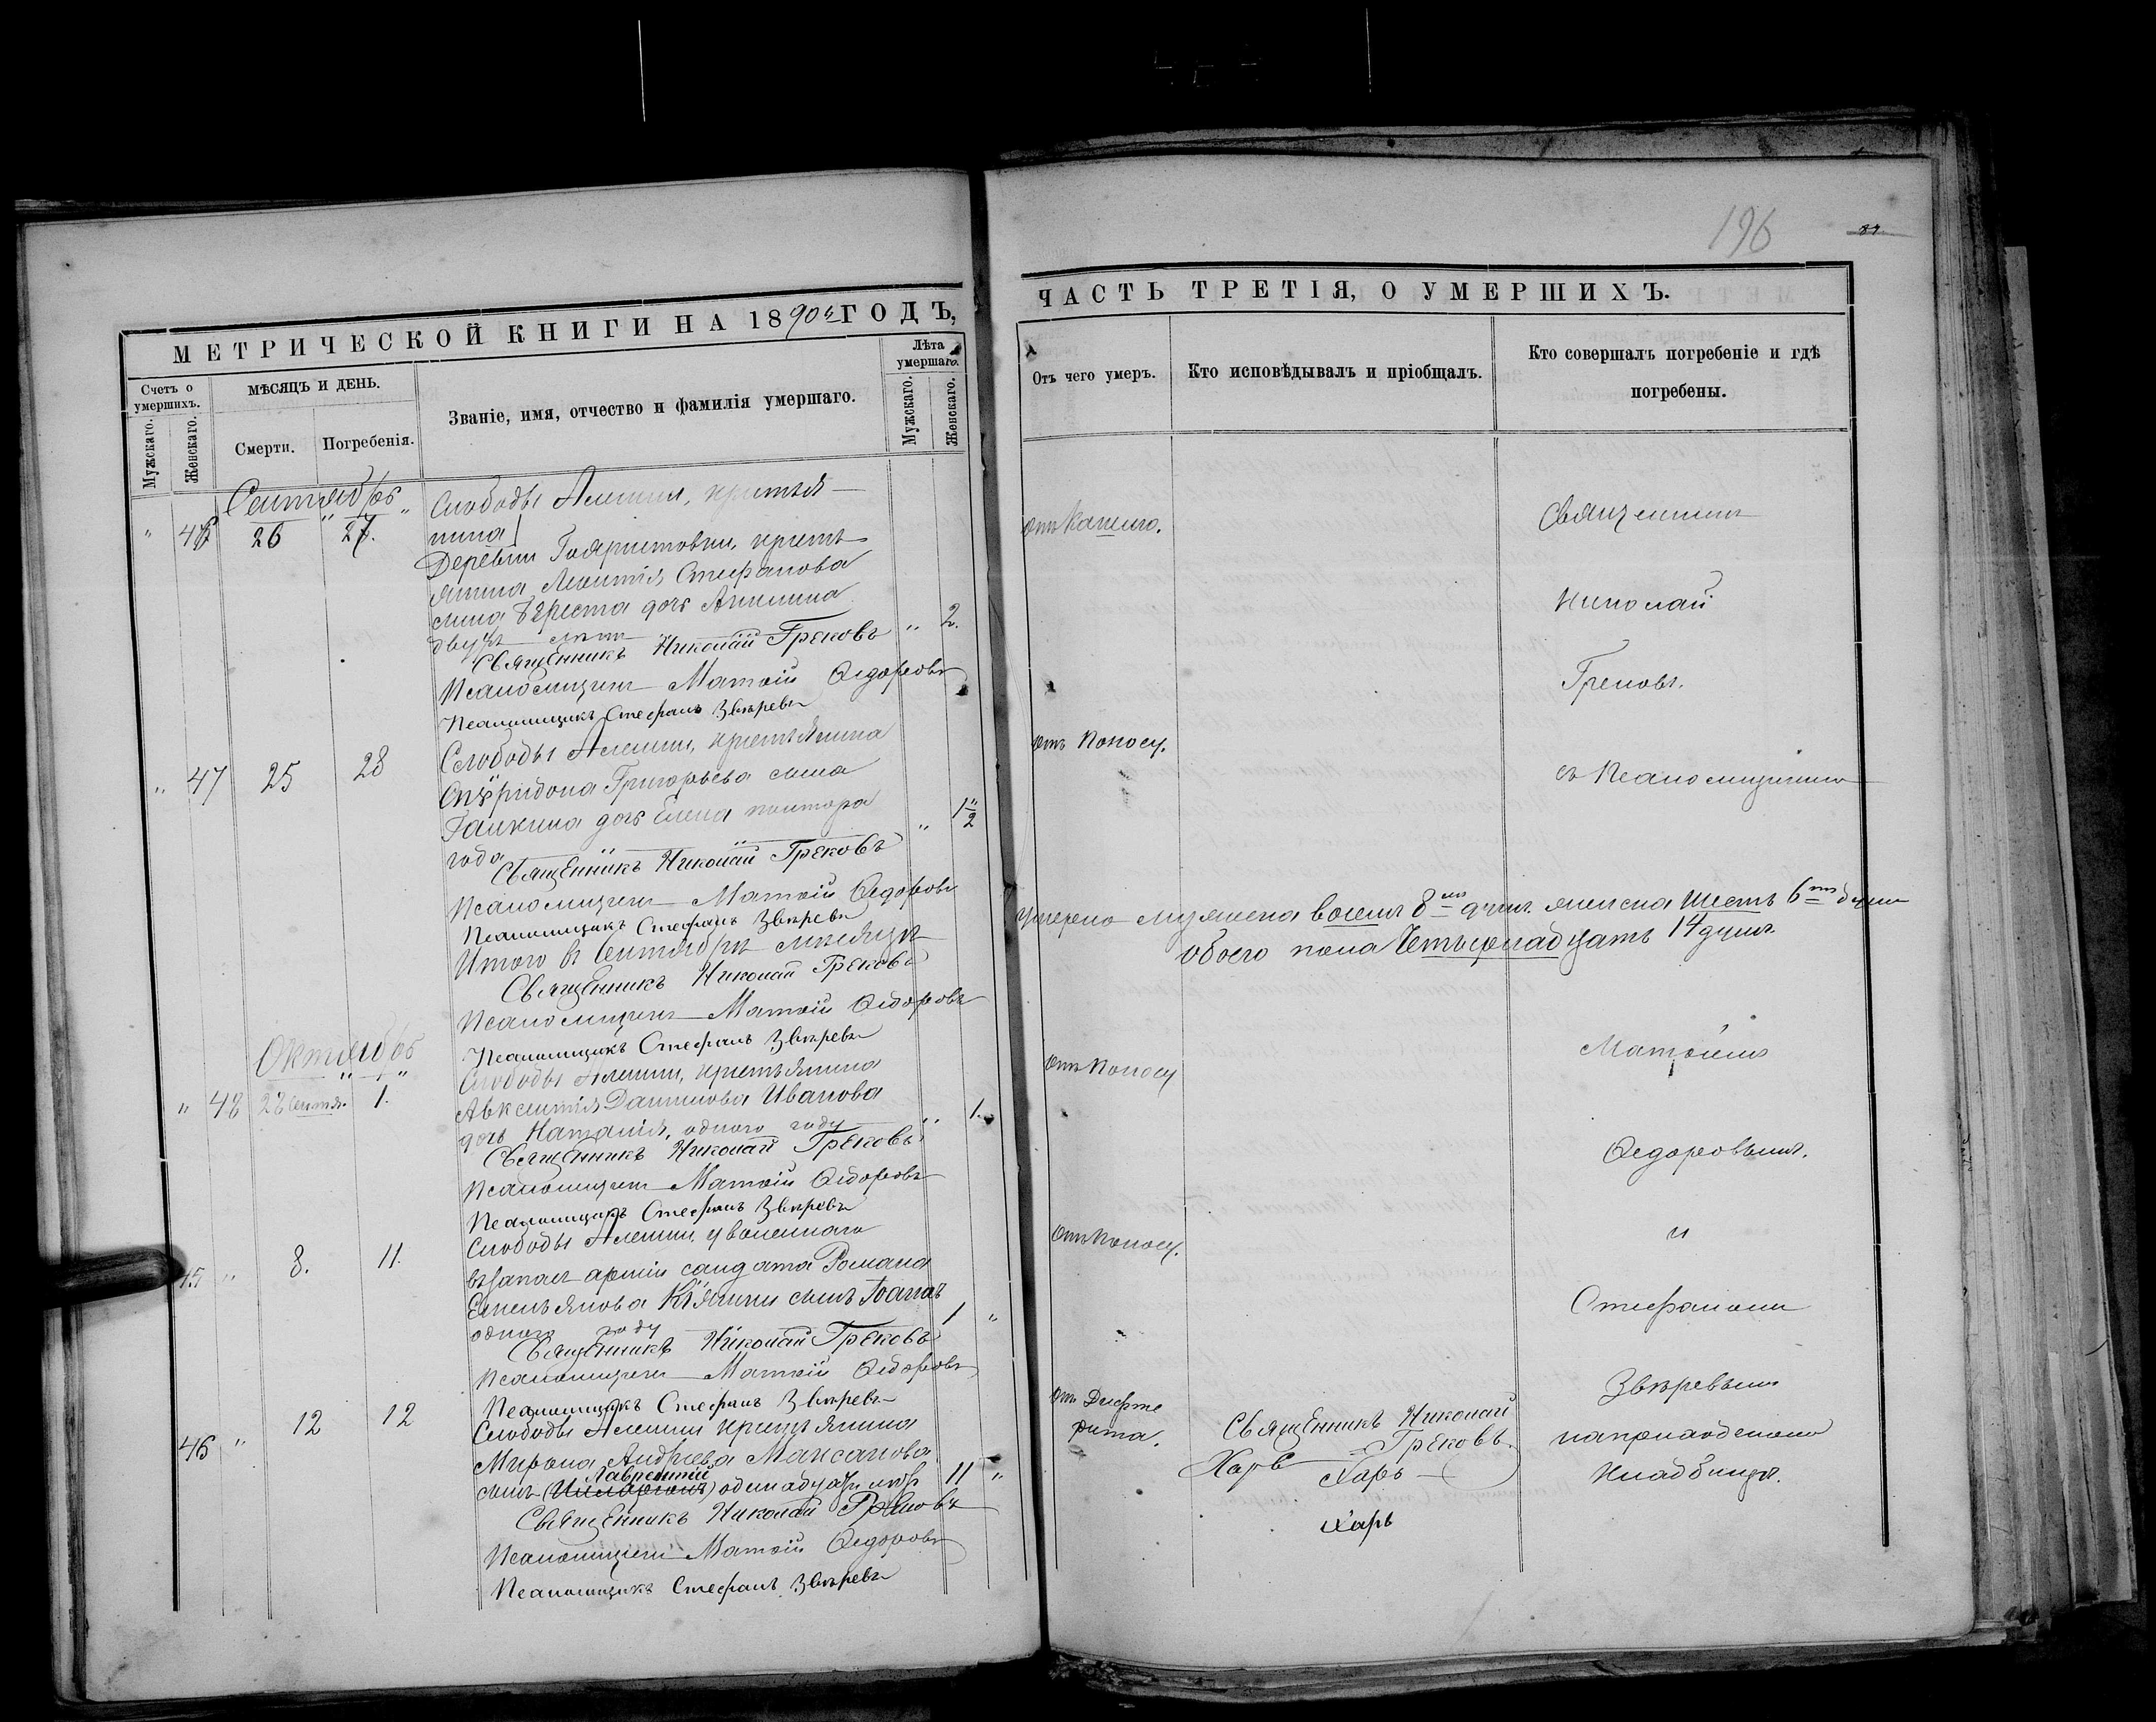 МЕТРИЧЕСКОЙ КНИГИ НА 1890й ГОДЪ,
Счетъ о умершихъ.
Мужскаго.
Женскаго.
МѢСЯЦЪ И ДЕНЬ.
Смерти.
Погребенія.
Званіе, имя, отчество и фамилія умершаго.
Лѣта умершаго.
Мужскаго.
Женскаго.
Сентябрь
" 46 26 27.
Слободы Алешни, крестья-
нина
Деревни крестья
янина Леонтія Стефанова
сына дочь Акилина
двухъ лѣтъ " 2.
Священникъ Николай Грековъ
Псаломщикъ Матѳій Ѳедоровъ
Псаломщикъ Стефанъ Звѣревъ
" 47 25 28
Слободы Алешни, крестьянина
Спѵридона Григорьева сына
Галкина дочь Елена полтора
года " 1 1/2
Священникъ Николай Грековъ
Псаломщикъ Матѳій Ѳедоровъ
Псаломщикъ Стефанъ Звѣревъ
Итого въ Сентябрѣ мѣсяцѣ
Священникъ Николай Грековъ
Псаломщикъ Матѳій Ѳедоровъ
Псаломщикъ Стефанъ Звѣревъ
Октябрь
" 48 28 Сентя. 1.
Слободы Алешни, крестьянина
Авксентія Данилова Иванова
дочь Наталія, одного году " 1.
Священникъ Николай Грековъ
Псаломщикъ Матѳій Ѳедоровъ
Псаломщикъ Стефанъ Звѣревъ
45 " 8. 11.
Слободы Алешни, уволеннаго
въ запасъ арміи салдата Романа
Емельянова сынъ Іоаннъ
одного году 1 "
Священникъ Николай Грековъ
Псаломщикъ Матѳій Ѳедоровъ
Псаломщикъ Стефанъ Звѣревъ
46 " 12 12
Слободы Алешни крестьянина
Мирона Андреева Максакова
Лаврентій
сынъ (Илларіонъ) одинадцати лѣтъ 11 "
Священникъ Николай Грековъ
Псаломщикъ Матѳій Ѳедоровъ
Псаломщикъ Стефанъ Звѣревъ
196
ЧАСТЬ ТРЕТІЯ, О УМЕРШИХЪ.
Отъ чего умеръ.
Кто исповѣдывалъ и пріобщалъ.
Кто совершалъ погребеніе и гдѣ погребены.
отъ Кашлю.
Священникъ
Николай
Грековъ.
отъ Поносу.
съ Псаломщиками
умерло мужеска восемь 8мъ душъ. женска шесть 6ть душъ
обоего пола Четырнадцать 14 душъ.
отъ Поносу
Матѳіемъ
Ѳедоровымъ.
отъ Поносу.
и
Стефаномъ
Звѣревымъ
отъ Дифте
рита.
Священникъ Николай
Грековъ.
на приходскомъ
Кладбищѣ.